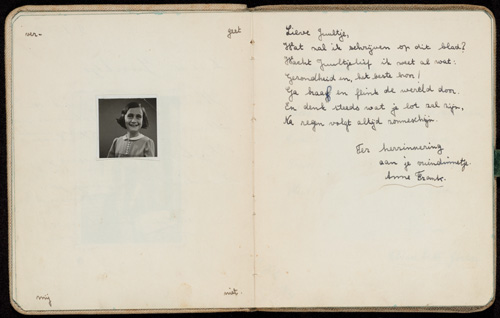 ver-
geet
mij
niet.
Lieve Juultje,
Wat zal ik schrijven op dit blad?
Wacht Juultjelief ik weet al wat:
Gezondheid en, het beste hoor!
Ga braaf en flink de wereld door.
En denk steeds wat je lot zal zijn,
Na regen volgt altijd zonneschijn.
Ter herrinnering
aan je vriendinnetje
Anne Frank.